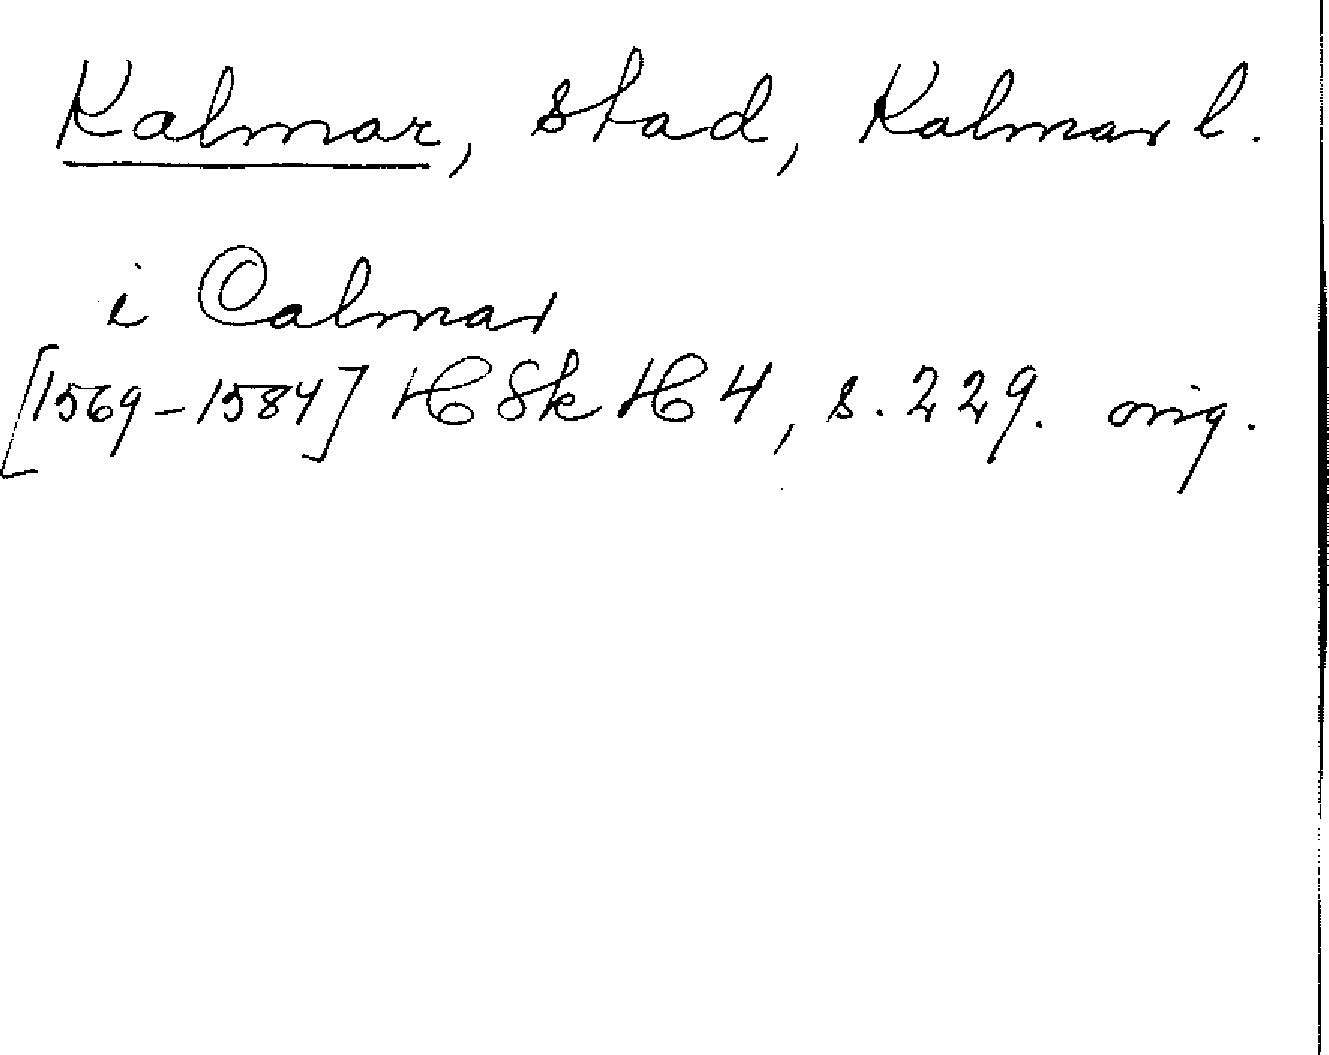 Kalmar, stad, Kalmar l.
i Calmar
[1569-1584] HSk H 4, s. 229. orig.